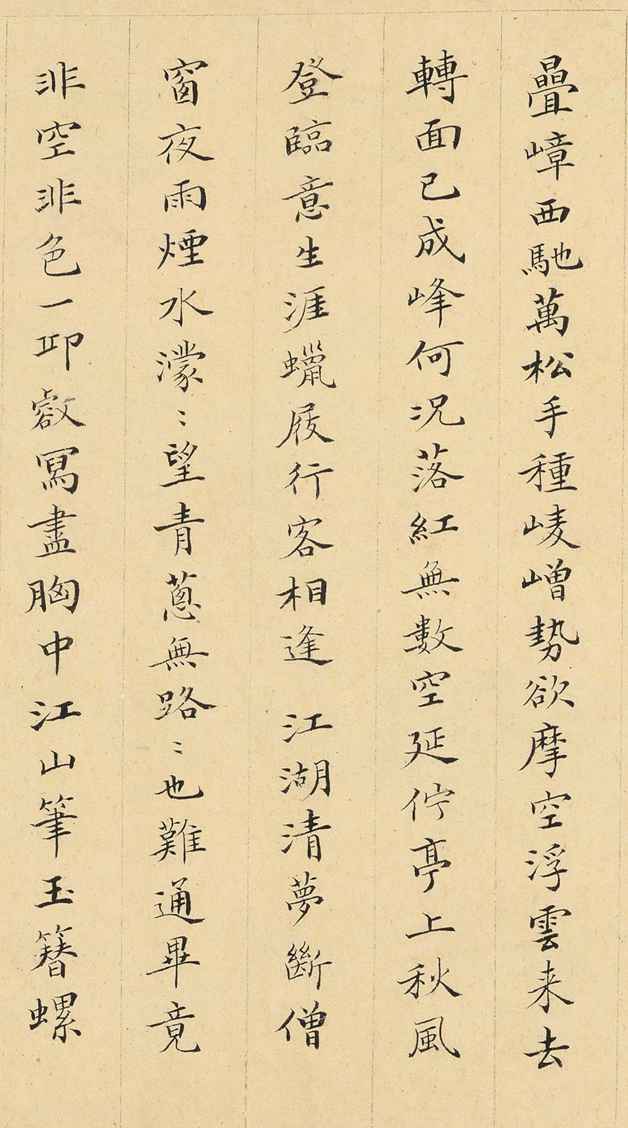 疊嶂西馳萬松手種崚嶒勢欲摩空浮雲来去
轉面已成峰何況落紅無數空延佇亭上秋風
登臨意生涯蠟屐行客相逢 江湖清夢斷僧
窗夜雨煙水濛〻望青蔥無路〻也難通畢竟
非空非色一卭叡冩盡胸中江山筆玉簪螺